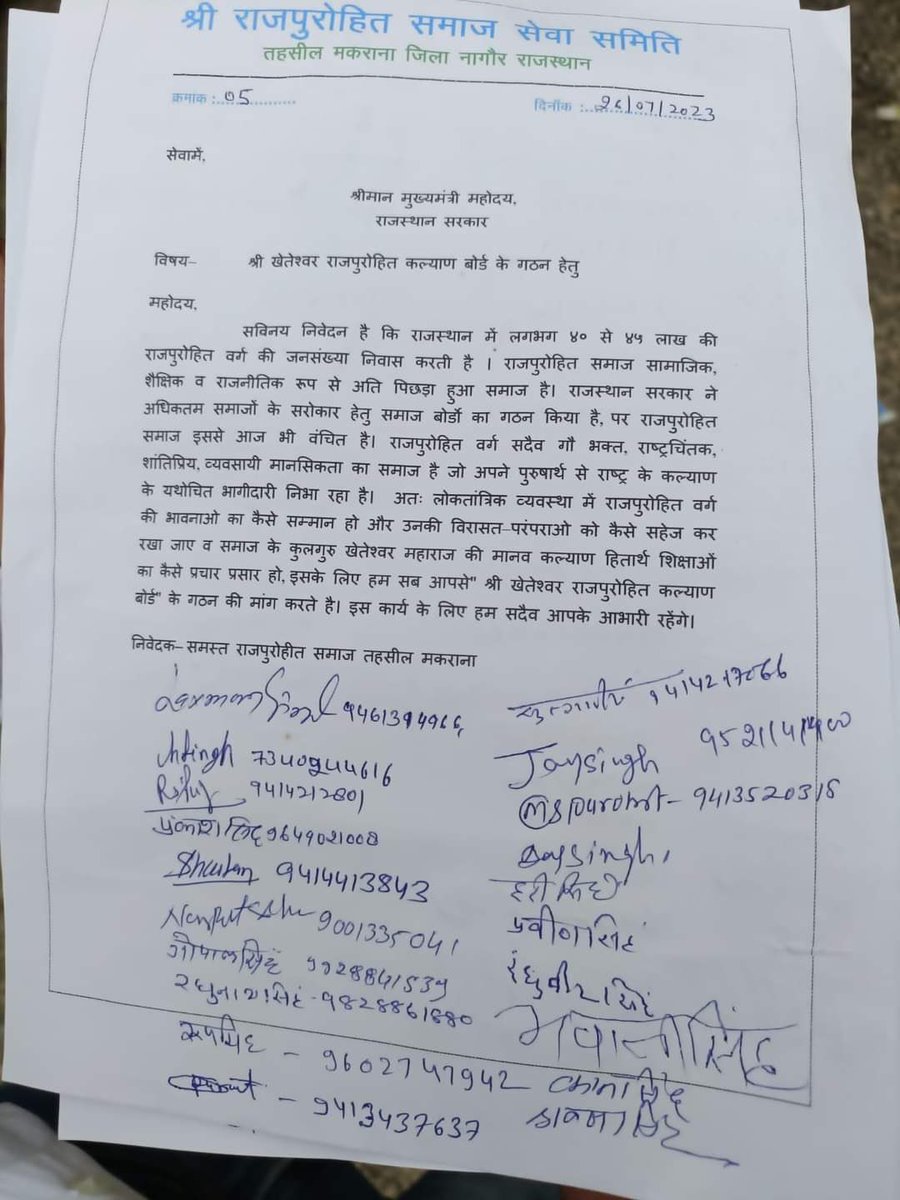 श्री राजपुरोहित समाज सेवा समिति
तहसील मकराना जिला नागौर राजस्थान
क्रमांक : 05
दिनाँक : 26/07/2023
सेवामें,
श्रीमान मुख्यमंत्री महोदय,
राजस्थान सरकार
विषय– श्री खेतेश्वर राजपुरोहित कल्याण बोर्ड के गठन हेतु
महोदय,
सविनय निवेदन है कि राजस्थान में लगभग ४० से ४५ लाख की
राजपुरोहित वर्ग की जनसंख्या निवास करती है । राजपुरोहित समाज सामाजिक,
शैक्षिक व राजनीतिक रूप से अति पिछड़ा हुआ समाज है। राजस्थान सरकार ने
अधिकतम समाजों के सरोकार हेतु समाज बोर्डो का गठन किया है, पर राजपुरोहित
समाज इससे आज भी वंचित है। राजपुरोहित वर्ग सदैव गौ भक्त, राष्ट्रचिंतक,
शांतिप्रिय, व्यवसायी मानसिकता का समाज है जो अपने पुरुषार्थ से राष्ट्र के कल्याण
के यथोचित भागीदारी निभा रहा है। अतः लोकतांत्रिक व्यवस्था में राजपुरोहित वर्ग
की भावनाओ का कैसे सम्मान हो और उनकी विरासत–परंपराओ को कैसे सहेज कर
रखा जाए व समाज के कुलगुरु खेतेश्वर महाराज की मानव कल्याण हितार्थ शिक्षाओं
का कैसे प्रचार प्रसार हो, इसके लिए हम सब आपसे" श्री खेतेश्वर राजपुरोहित कल्याण
बोर्ड" के गठन की मांग करते है। इस कार्य के लिए हम सदैव आपके आभारी रहेंगे।
निवेदक– समस्त राजपुरोहीत समाज तहसील मकराना
9414217066
Jaysingh
9414212801
9413520318
प्रकाश सिंह 9649021008
9414413843
हरी सिंह
9001335041
प्रवीण सिंह
गोपाल सिंह 9928841539
रघुवीर सिंह
रघुनाथ सिंह - 9828861880
भवानी सिंह
रूपसिंह - 9602747942
9413437637